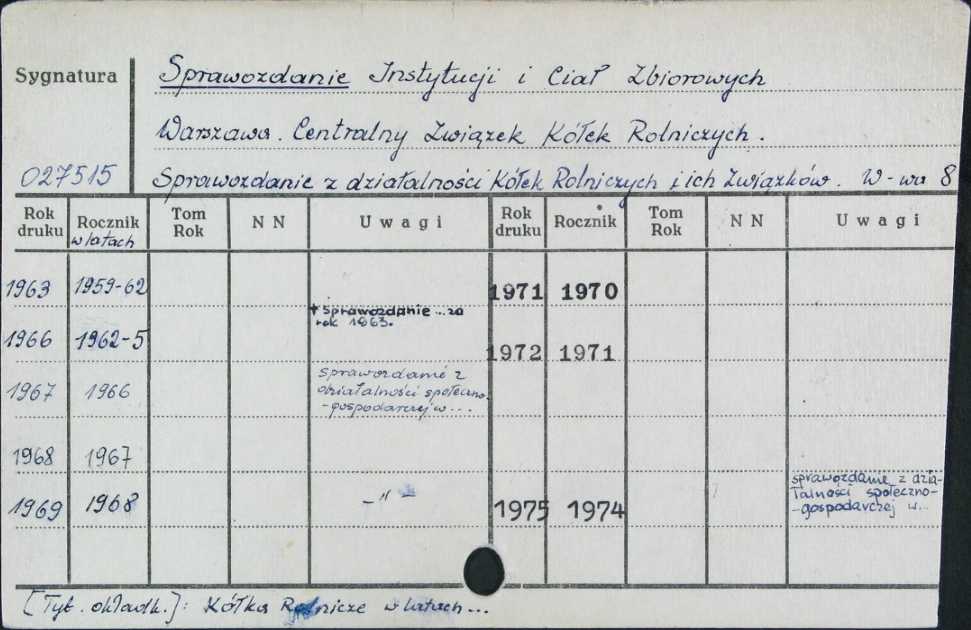 Sygnatura
Sprawozdanie Instytucji i Ciał Zbiorowych
Warszawa. Centralny Związek Kółek Rolniczych.
027515
Sprawozdanie z działalności Kółek Rolniczych i ich Związków. W-wa 8
Rok druku Rocznik w latach Tom Rok NN Uwagi Rok druku Rocznik Tom Rok NN Uwagi
1963 1959-62 1971 1970
+ Sprawozdanie ... za
rok 1963.
1966 1962-5 1972 1971
1967 1966
Sprawozdanie z
działalności społeczno-
-gospodarczej w...
1968 1967
1969 1968 -"- 1975 1974
sprawozdanie z dzia-
łalności społeczno-
-gospodarczej w...
[Tyt. okładk.]: Kółka Rolnicze w latach...